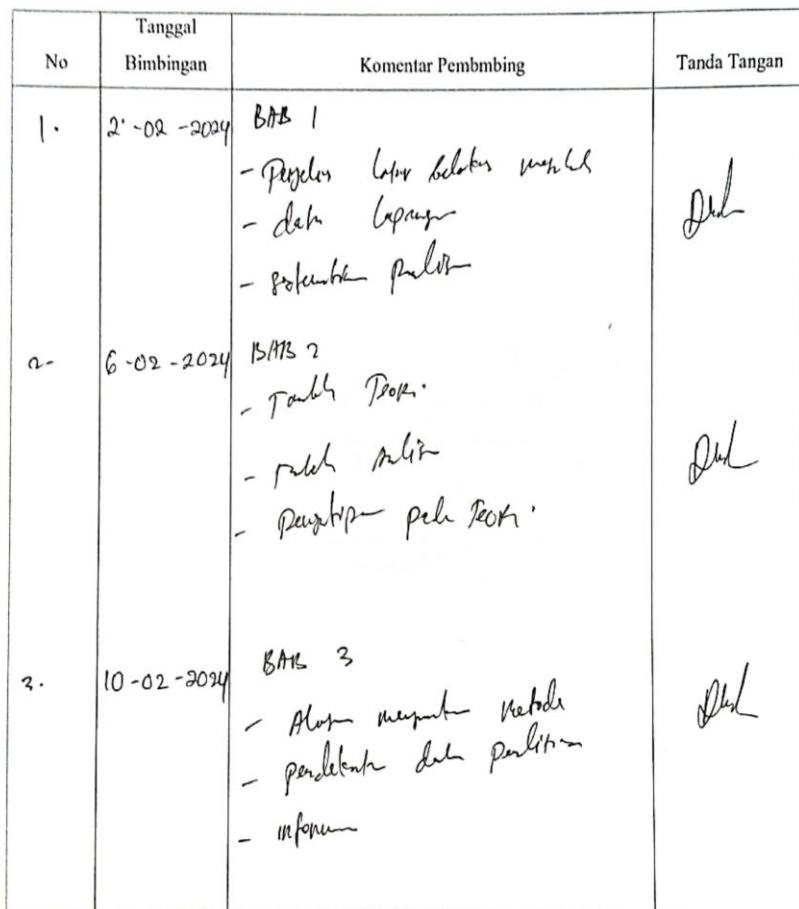 No
Tanggal Bimbingan
Komentar Pembmbing
Tanda Tangan
1. 2-02-2024 BAB 1
- Perjelas latar belakang masalah
- data lapangan
- sistematika penulisan
2- 6-02-2024 BAB 2
- Tambah Teori.
-
- Pengutipan pada Teori.
3. 10-02-2024 BAB 3
- Alasan menggunakan metode
- pendekatan dalam penelitian
- informan